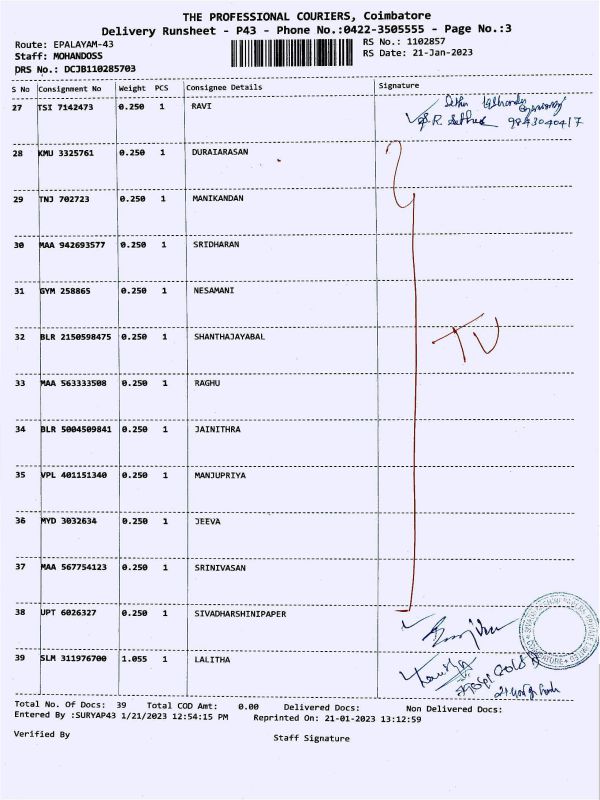 THE PROFESSIONAL COURIERS, Coimbatore
Delivery Runsheet - P43 - Phone No.:0422-3505555 - Page No.:3
Route: EPALAYAM-43 RS No.: 1102857
Staff: MOHANDOSS RS Date: 21-Jan-2023
DRS No.: DCJB110285703
S No Consignment No Weight PCS Consignee Details Signature
27 TSI 7142473 0.250 1 RAVI
9843040417
28 KMU 3325761 0.250 1 DURAIARASAN
29 TNJ 702723 0.250 1 MANIKANDAN
30 MAA 942693577 0.250 1 SRIDHARAN
31 GYM 258865 0.250 1 NESAMANI
32 BLR 2150598475 0.250 1 SHANTHAJAYABAL
TV
33 MAA 563333508 0.250 1 RAGHU
34 BLR 5004509841 0.250 1 JAINITHRA
35 VPL 401151340 0.250 1 MANJUPRIYA
36 MYD 3032634 0.250 1 JEEVA
37 MAA 567754123 0.250 1 SRINIVASAN
38 UPT 6026327 0.250 1 SIVADHARSHINIPAPER
39 SLM 311976700 1.055 1 LALITHA
Total No. Of Docs: 39 Total COD Amt: 0.00 Delivered Docs: Non Delivered Docs:
Entered By :SURYAP43 1/21/2023 12:54:15 PM Reprinted On: 21-01-2023 13:12:59
Verified By Staff Signature